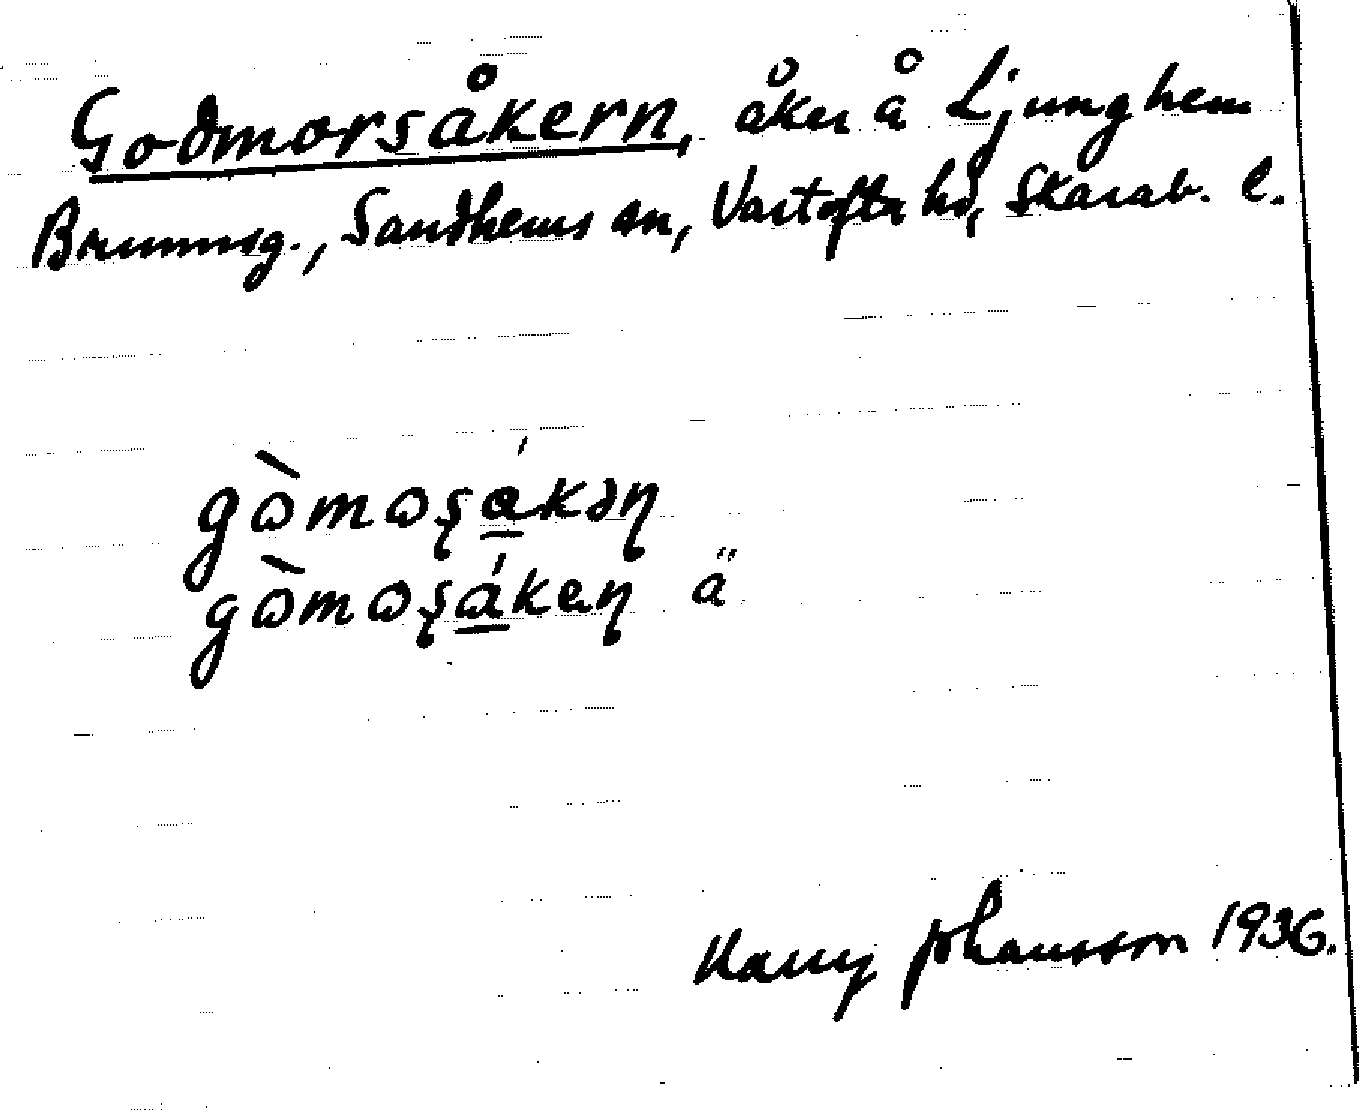 Godmorsåkern, åker å Ljunghem
Brunnsg., Sandhems sn, Vartofta hd, Skarab. l.
gòmoʂákəɳ
gòmoʂákeɳ ä
Harry Johansson 1936.